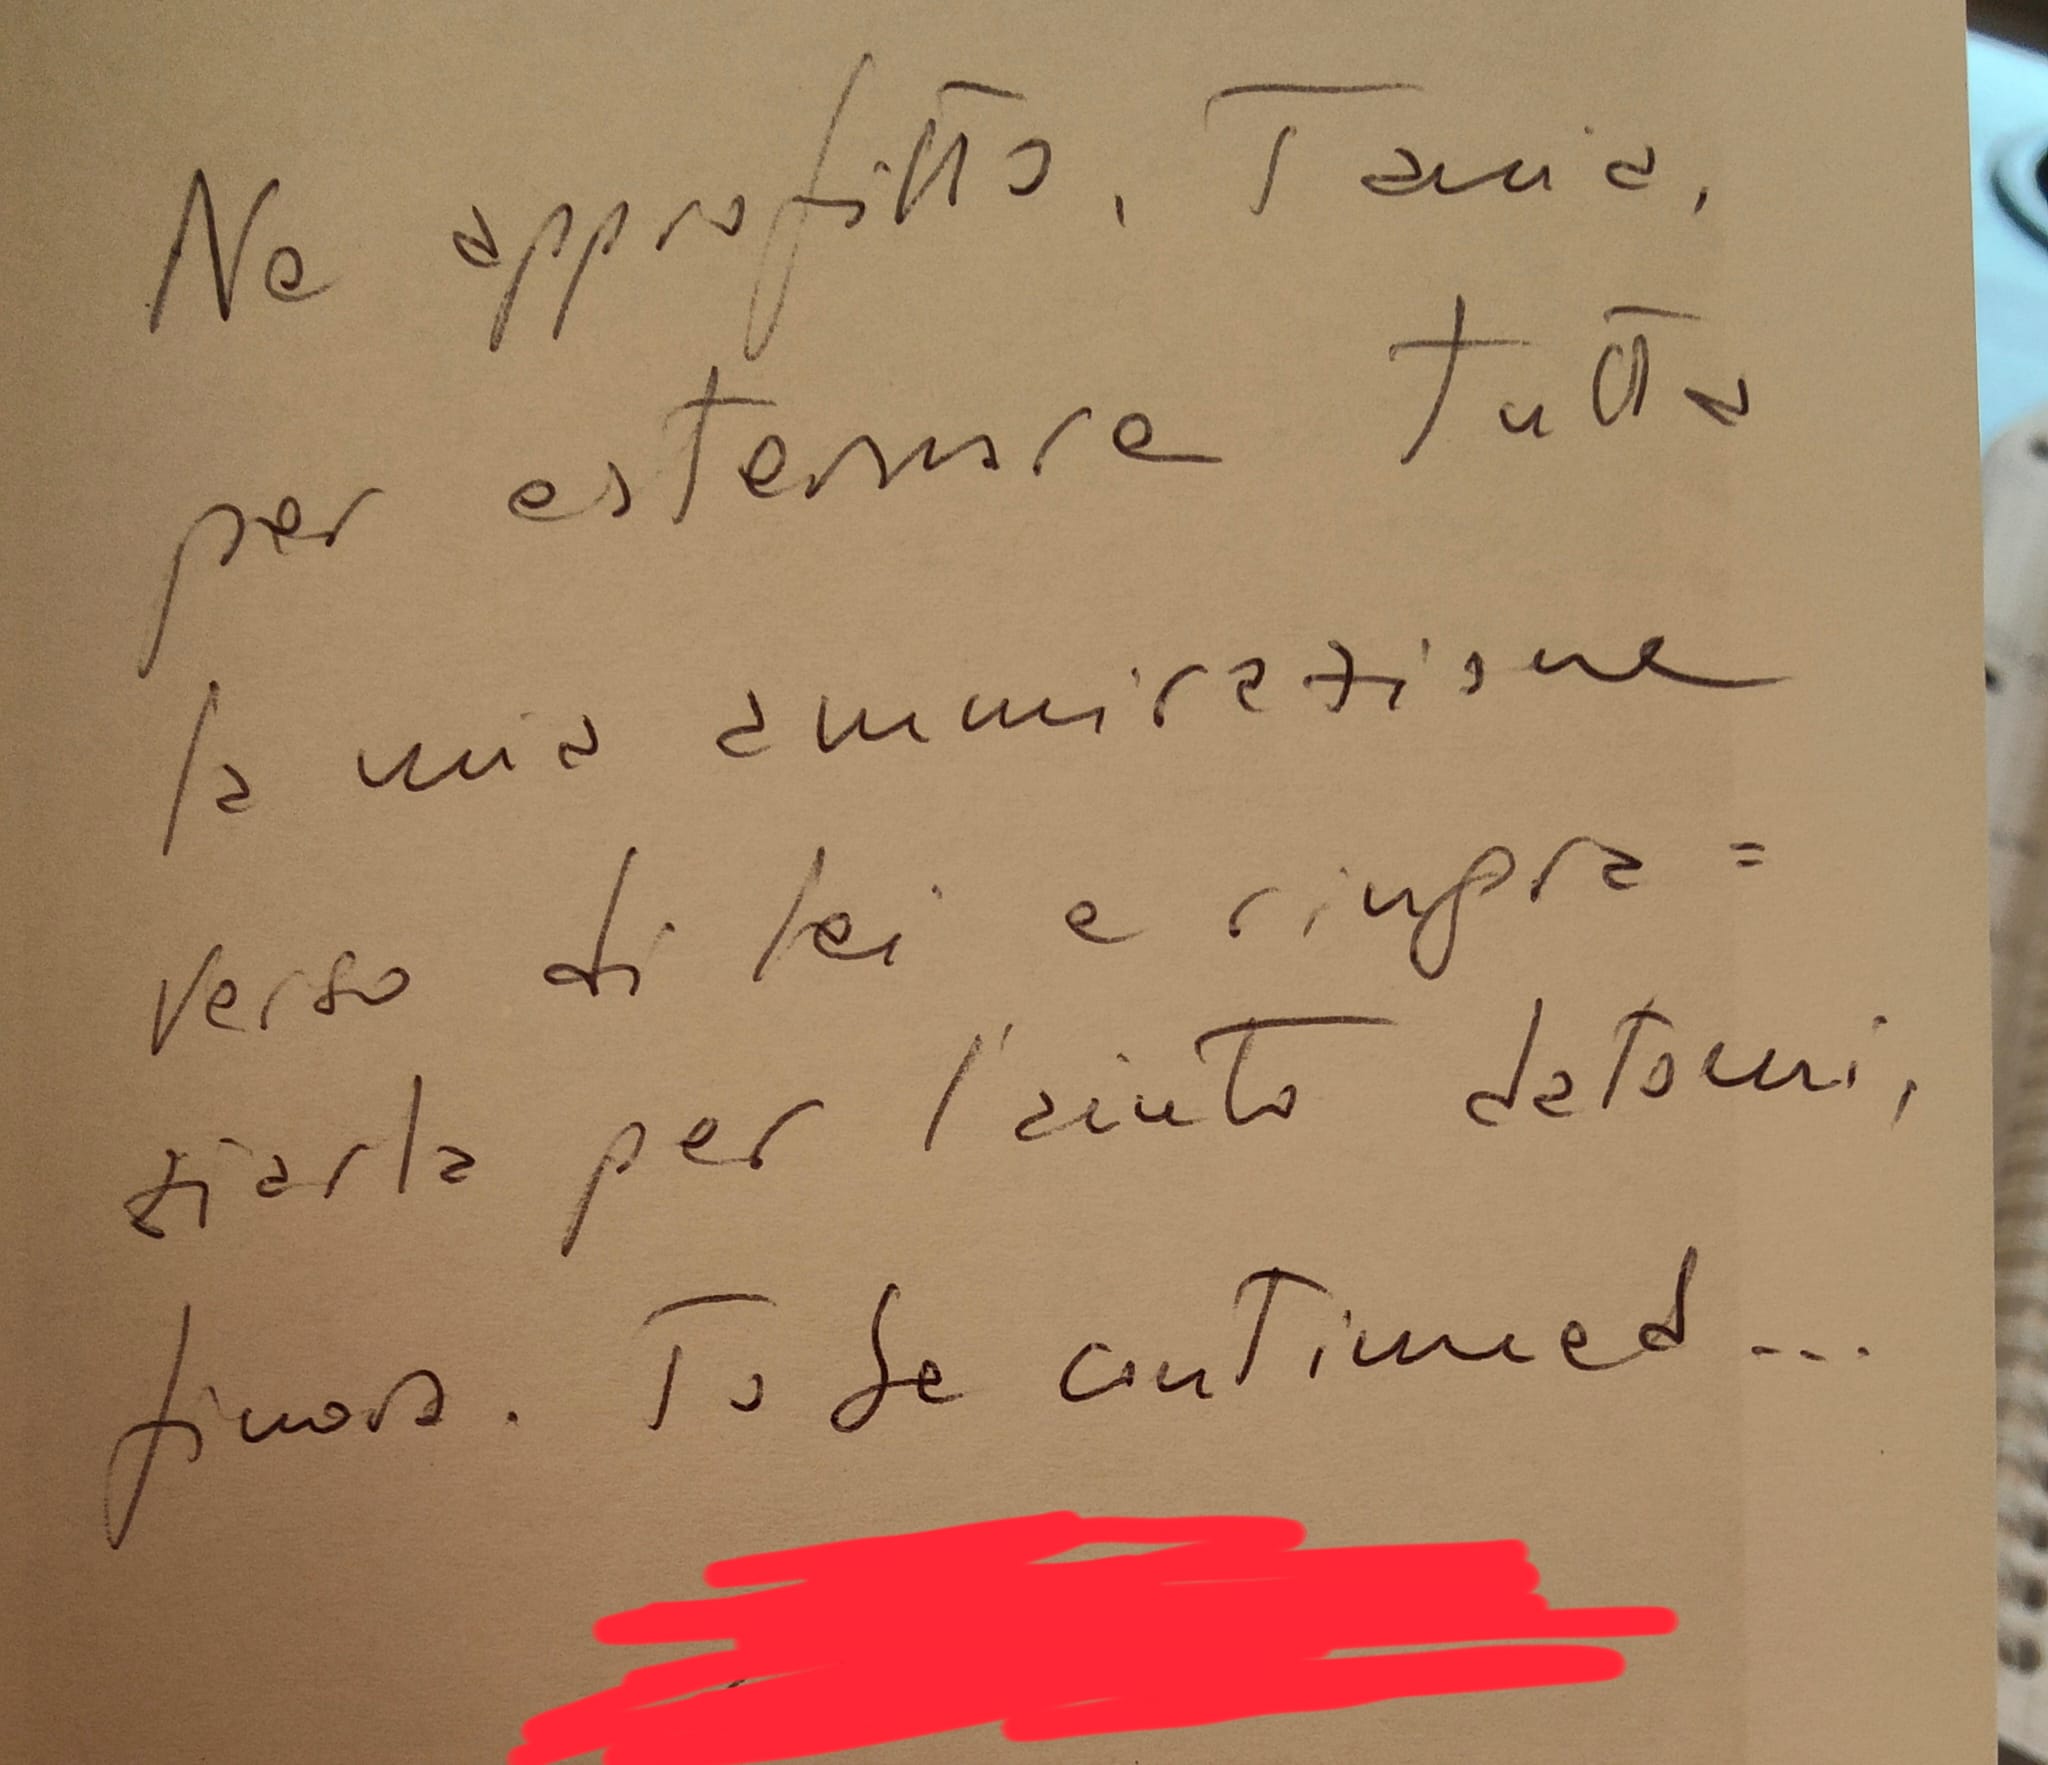 Ne approfitto, Tania,
per esternare tutta
la mia ammirazione
verso di lei e ringra=
ziarla per l'aiuto datomi,
finora. To be continued...